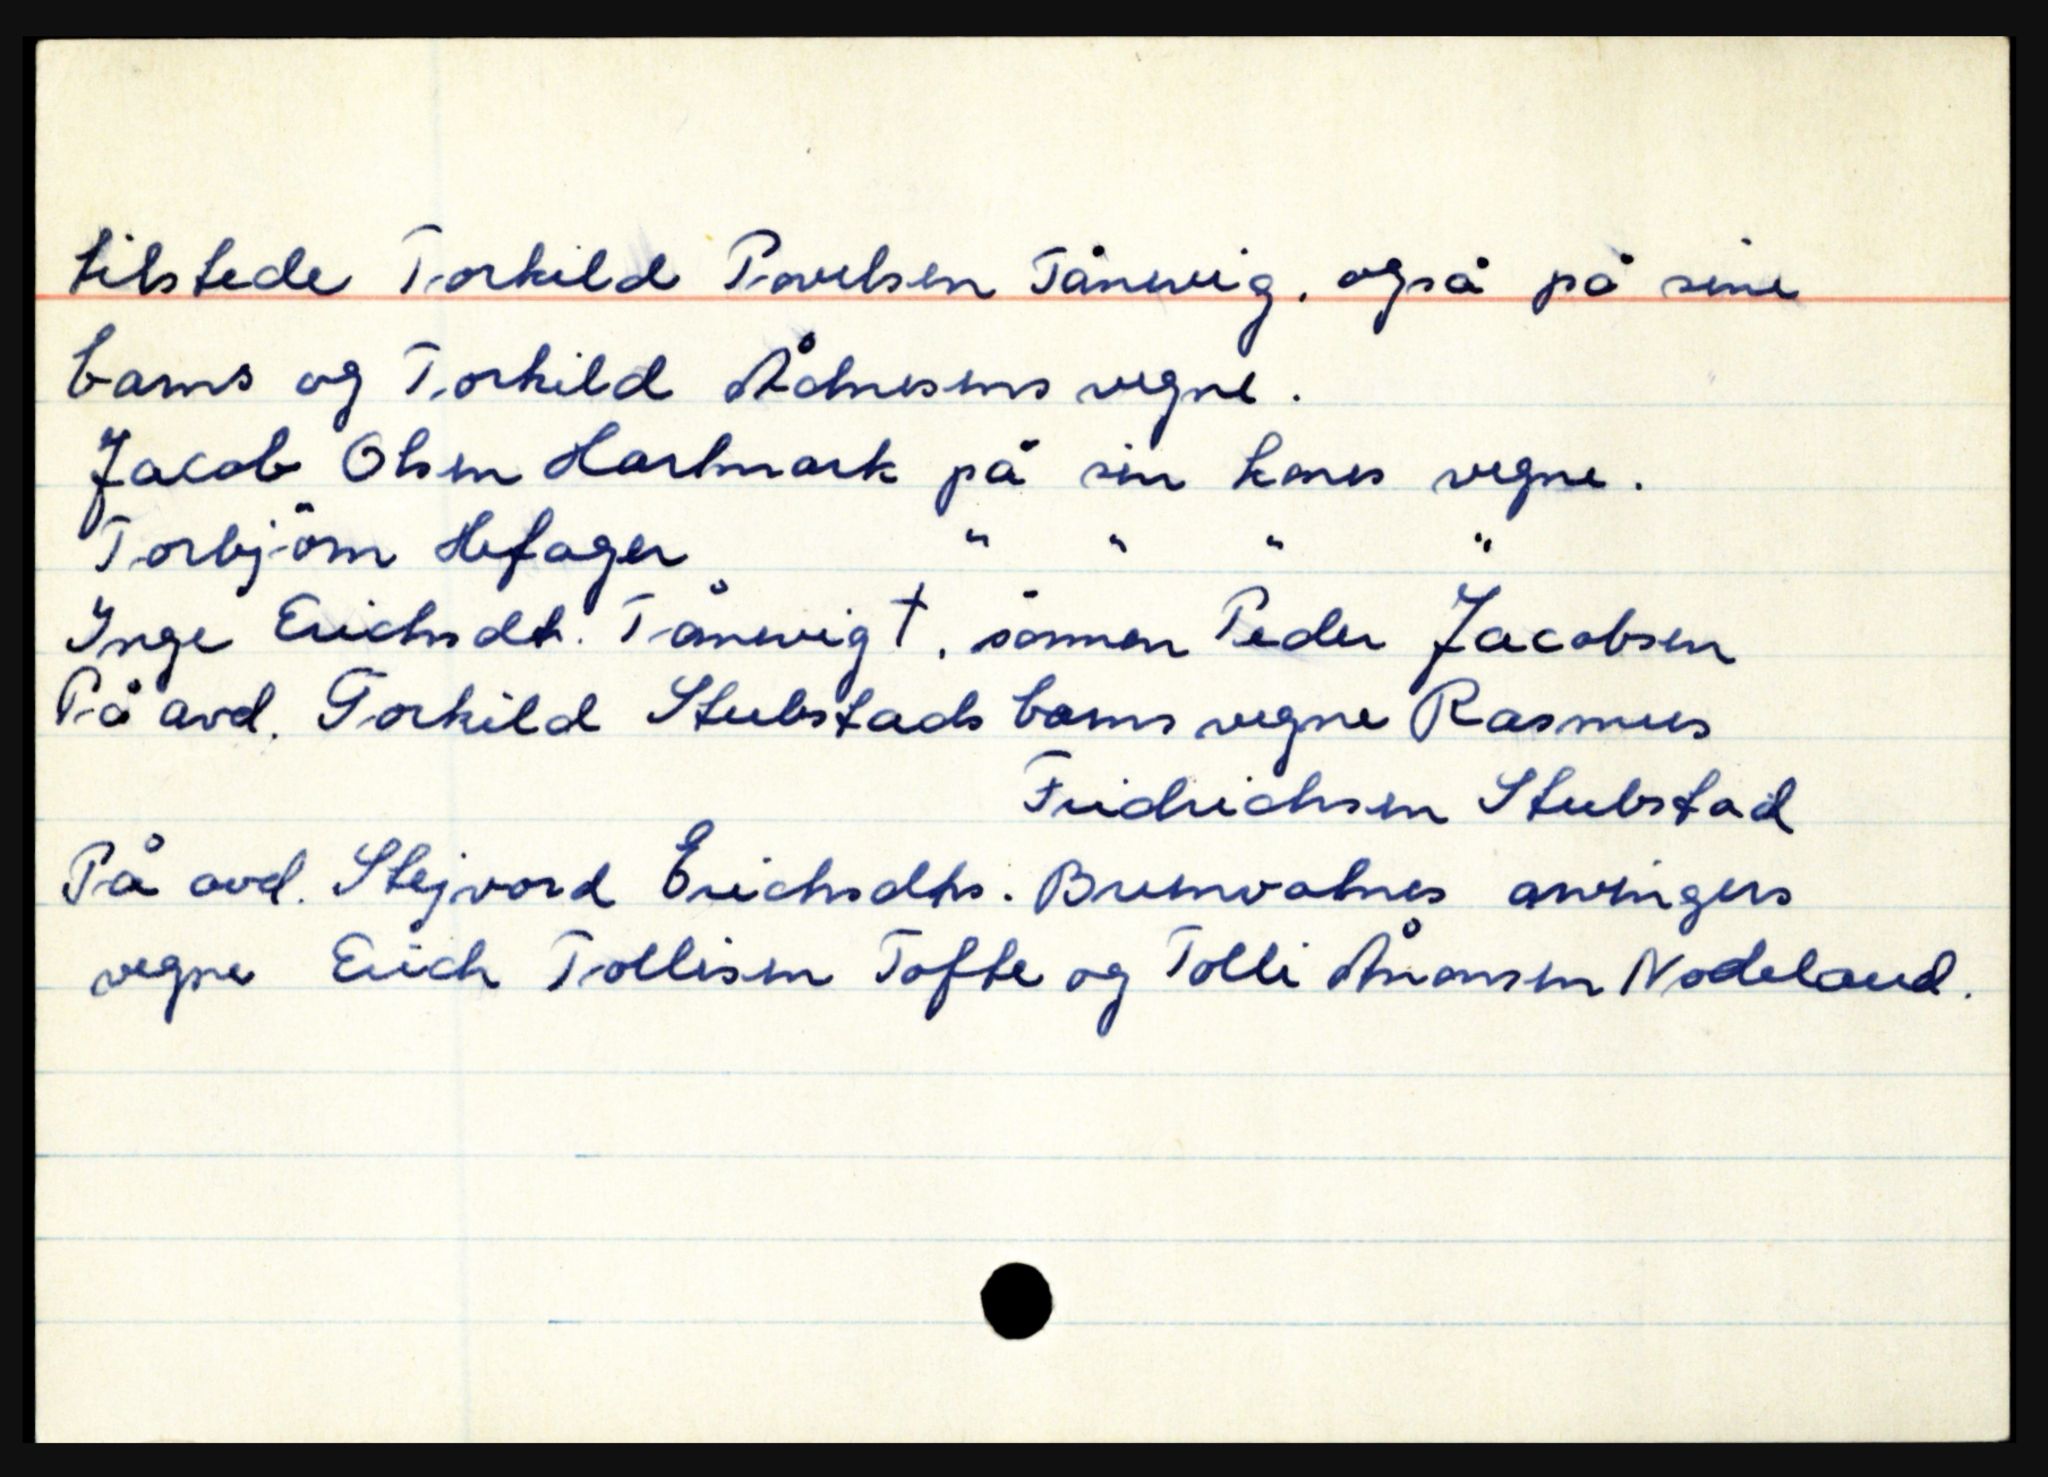 tilstede Torkild Povelsen Tånevig, også på sine
barns og Torkild Ådnesens vegne.
Jacob Olsen Hartmark på sin kones vegne.
Torbjörn Hefager " " " "
Inge Erichsdt. Tånevig †, sönnen Peder Jacobsen
På avd. Torkild Stubstads barns vegne Rasmus
Fridrichsen Stubstad
På avd. Stejvord Erichsdts. Brunvatnes arvingers
vegne Erich Tollisen Tofte og Tolli Ånonsen Nodeland.